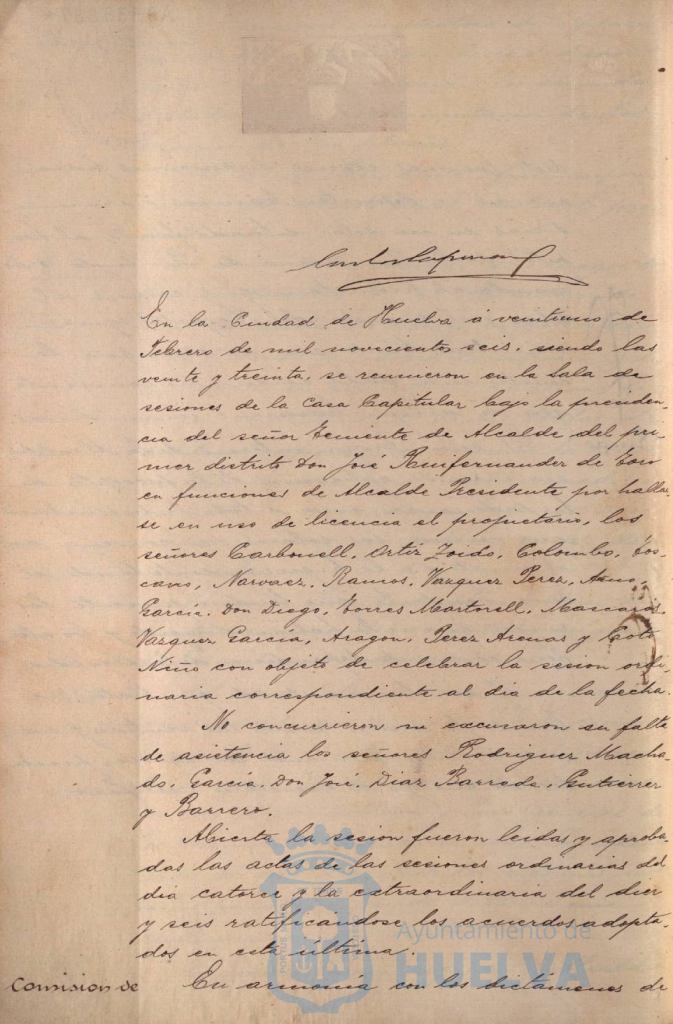 En la Ciudad de Huelva á veintiuno de
Febrero de mil novecientos seis, siendo las
veinte y treinta, se reunieron en la Sala de
sesiones de la Casa Capitular bajo la presiden-
cia del señor Teniente de Alcalde del pri-
mer distrito Don José Ruifernandez de Toro
en funciones de Alcalde Presidente por hallar
se en uso de licencia el propietario, los
señores Carbonell, Ortiz Zoido, Colombo, Tos-
cano, Narvaez, Ramos, Vazquez Perez,
García, Don Diego, Torres Martorell, Mascarós,
Vazquez García, Aragon, Perez Arenas y Coto
Niño con objeto de celebrar la sesion ordi-
naria correspondiente al dia de la fecha.
No concurrieron ni excusaron su falta
de asistencia los señores Rodriguez Macha-
do, García, Don José, Diaz Barreda, Gutierrez
y Barrero.
Abierta la sesion fueron leidas y aproba-
das las actas de las sesiones ordinarias del
dia catorce y la extraordinaria del diez
y seis ratificandose los acuerdos adopta-
dos en esta última.
Comision de En armonía con los dictámenes de
Ayuntamiento de
HUELVA